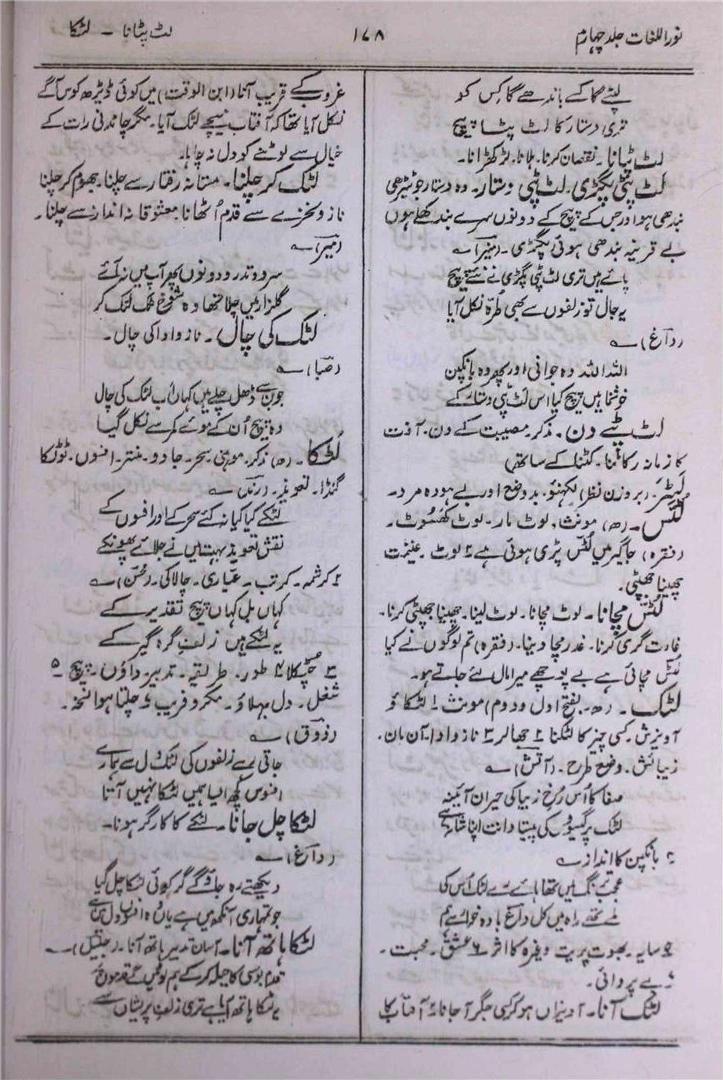 نور اللغات جلد چہارم
۱۷۸
لٹ پٹانا ۔ لٹکا
لپٹے گا کے باندھے گا کس کو
تری دستار کا لٹ پٹا پیچ
لٹ پٹانا۔ نقصان کرنا۔ ہلانا۔ لڑکھڑانا۔
لٹ پٹی پگڑی۔ لٹ پٹی دستار۔ وہ دستار جو ٹیڑھی
بندھی ہو اور جس کے پیچ کے دونوں سرے بندھے کھلے ہوں
بے قرینہ بندھی ہوئی پگڑی۔ (میر) ؎
پائے ہیں تری لٹ پٹی پگڑی نے نئے پیچ
یہ جال تو زلفوں سے بھی طرہ نکل آیا
(داغ) ؎
اللہ اللہ وہ جوانی اور پھر وہ بانکپن
خوشنما ہیں پیچ کیا اس لٹ پٹی دستار کے
لٹ پٹے دن۔ مذکر۔ مصیبت کے دن۔ آفت
کا زمانہ رکاٹنا۔ کٹنا کے ساتھ)
(بروزن نظر) لکھنؤ۔ بد وضع اور بے ہودہ مرد۔
لٹس۔ (ھ) مونث۔ لوٹ مار۔ لوٹ کھسوٹ۔
(فقرہ) جاگیر میں لٹس پڑی ہوئی ہے ۲ لوٹ۔ غنیمت
چھینا جھپٹی۔
لٹس مچانا۔ لوٹ مچانا۔ لوٹ لینا۔ چھینا جھپٹی کرنا۔
غارت گری کرنا۔ غدر مچا دینا۔ (فقرہ) تم لوگوں نے کیا
لٹس مچائی ہے بے پوچھے میرا مال لئے جاتے ہو۔
لٹک۔ (ھ۔ بفتح اول و دوم) مونث ۱ لٹکاؤ
آویزش۔ کسی چیز کا لٹکنا ۲ جھالر ۳ ناز و ادا۔ آن بان۔
زیبائش۔ وضع طرح۔ (آتش) ؎
صفا کا اُس رخِ زیبا کی حیراں آئینہ
لٹک پر گیسوؤں کی پیتا دانت اپنا شانہ ہے
۴ بانکپن کا انداز ؎
عجب رنگ میں تھا ہائے لٹک اُس کی
تھے راہ میں کل داغ بادہ خوار سے ہم
۵ سایہ۔ بھوت پریت وغیرہ کا اثر ۶ عشق۔ محبت۔
۷ بے پروائی۔
لٹک آنا۔ آویزاں ہو کر کسی جگہ آ جانا ۲ آفتاب کا
غروب کے قریب آنا (ابن الوقت) میں کوئی ڈیڑھ کوس آگے
نکل آیا تھا کہ آفتاب نیچے لٹک آیا۔ مگر چاندنی رات کے
خیال سے لوٹنے کو دل نہ چاہا۔
لٹک کر چلنا۔ مستانہ رفتار سے چلنا۔ جھوم کر چلنا
ناز و نخرے سے قدم اُٹھانا معشوقانہ انداز سے چلنا۔
(میر) ؎
سرو و تدرو دونوں پھر آپ میں نہ آئے
گلزار میں چلا تھا وہ شوخ ٹک لٹک کر
لٹک کی چال۔ ناز و ادا کی چال۔
(صبا) ؎
جوبن سے ڈھل چلے ہیں کہاں اب لٹک کی چال
وہ پیچ اُن کے موئے کمر سے نکل گیا
لٹکا۔ (ھ) مذکر۔ موہنی۔ سحر۔ جادو۔ منتر۔ افسوں۔ ٹوٹکا
گنڈا۔ تعویذ۔ (رند) ؎
لٹکے کیا کیا نہ کئے سحر کے اور افسوں کے
نقش تعویذ بہت میں نے جلائے پھونکے
۲ کرشمہ۔ کرتب۔ عیاری۔ چالاکی۔ (محسن) ؎
کہاں بل کہاں پیچ تقدیر کے
یہ لٹکے ہیں زلفِ گرہ گیر کے
۳ چٹکلا ۴ طور۔ طریقہ۔ تدبیر۔ داؤں۔ پیچ ۵
شغل۔ دل بہلاؤ۔ مکر و فریب ۶ چلتا ہوا نسخہ۔
(ذوق) ؎
جاتی ہے زلفوں کی لٹک دل سے ہمارے
افسوس کچھ ایسا ہمیں لٹکا نہیں آتا
لٹکا چل جانا۔ لٹکے کا کارگر ہونا۔
(داغ) ؎
دیکھتے رہ جاؤ گے گر کوئی لٹکا چل گیا
جو تمہاری آنکھ میں ہے یاں وہ افسوں دل میں ہے
لٹکا ہاتھ آنا۔ آسان تدبیر ہاتھ آنا۔ (جلیل) ؎
قدم بوسی کا حیلہ کر کے ہم لوٹیں گے قدموں پر
یہ لٹکا ہاتھ آیا ہے تری زلفِ پریشاں سے